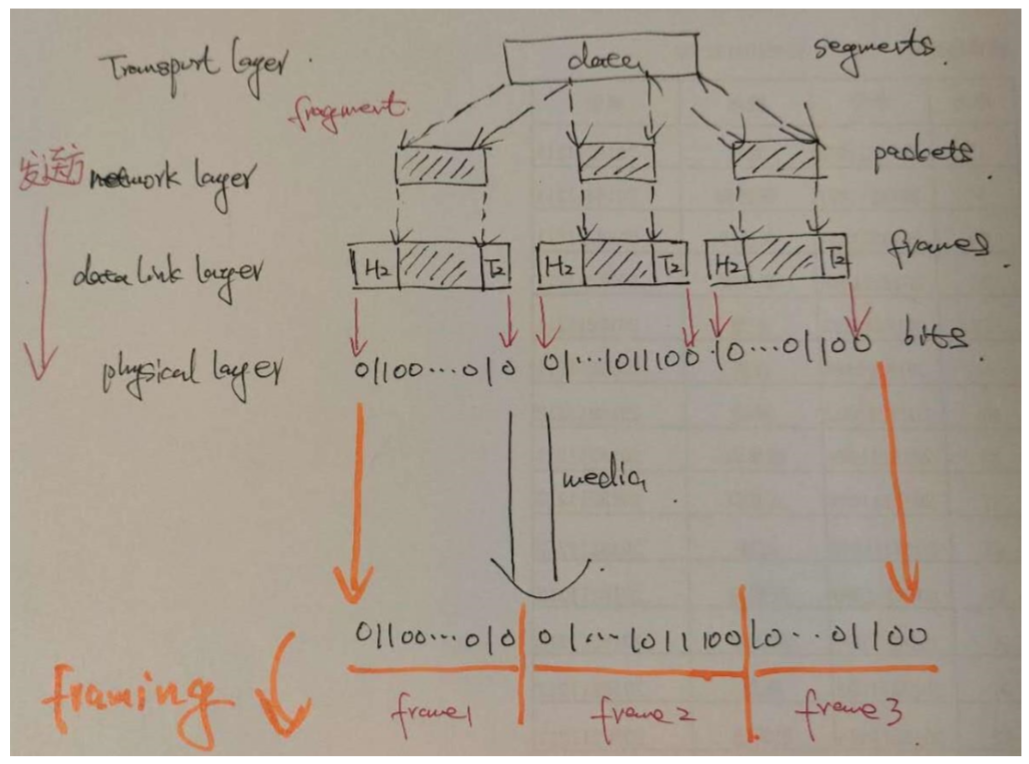 Transport layer. data segments.
fragment.
发送方 network layer packets.
data link layer H2 T2 H2 T2 H2 T2 frames.
physical layer 01100...010 01...1011100 10...01100 bits.
media.
01100...010 01...1011100 10...01100
framing frame1 frame2 frame3